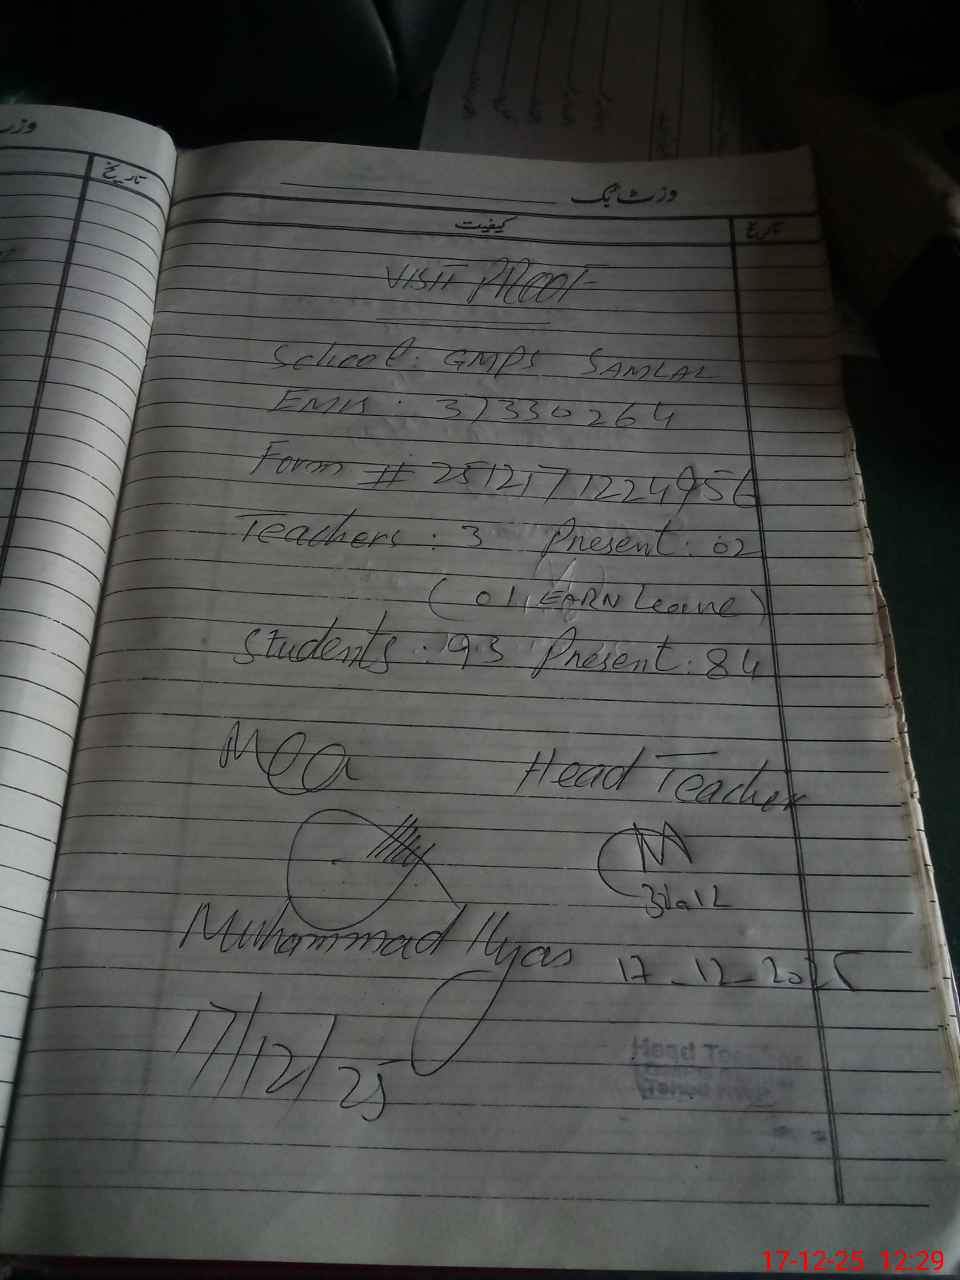 وزٹ بک
تاریخ
کیفیت
تاریخ
VISIT PROOF
School: GMPS SAMLAL
EMIS: 37330264
Form # 2512171224956
Teachers: 3 Present: 02
(01 EARN Leave)
Students: 93 Present: 84
MEA
Head Teacher
Muhammad Ilyas
17-12-2025
17/12/25
Head Teacher
17-12-25 12:29